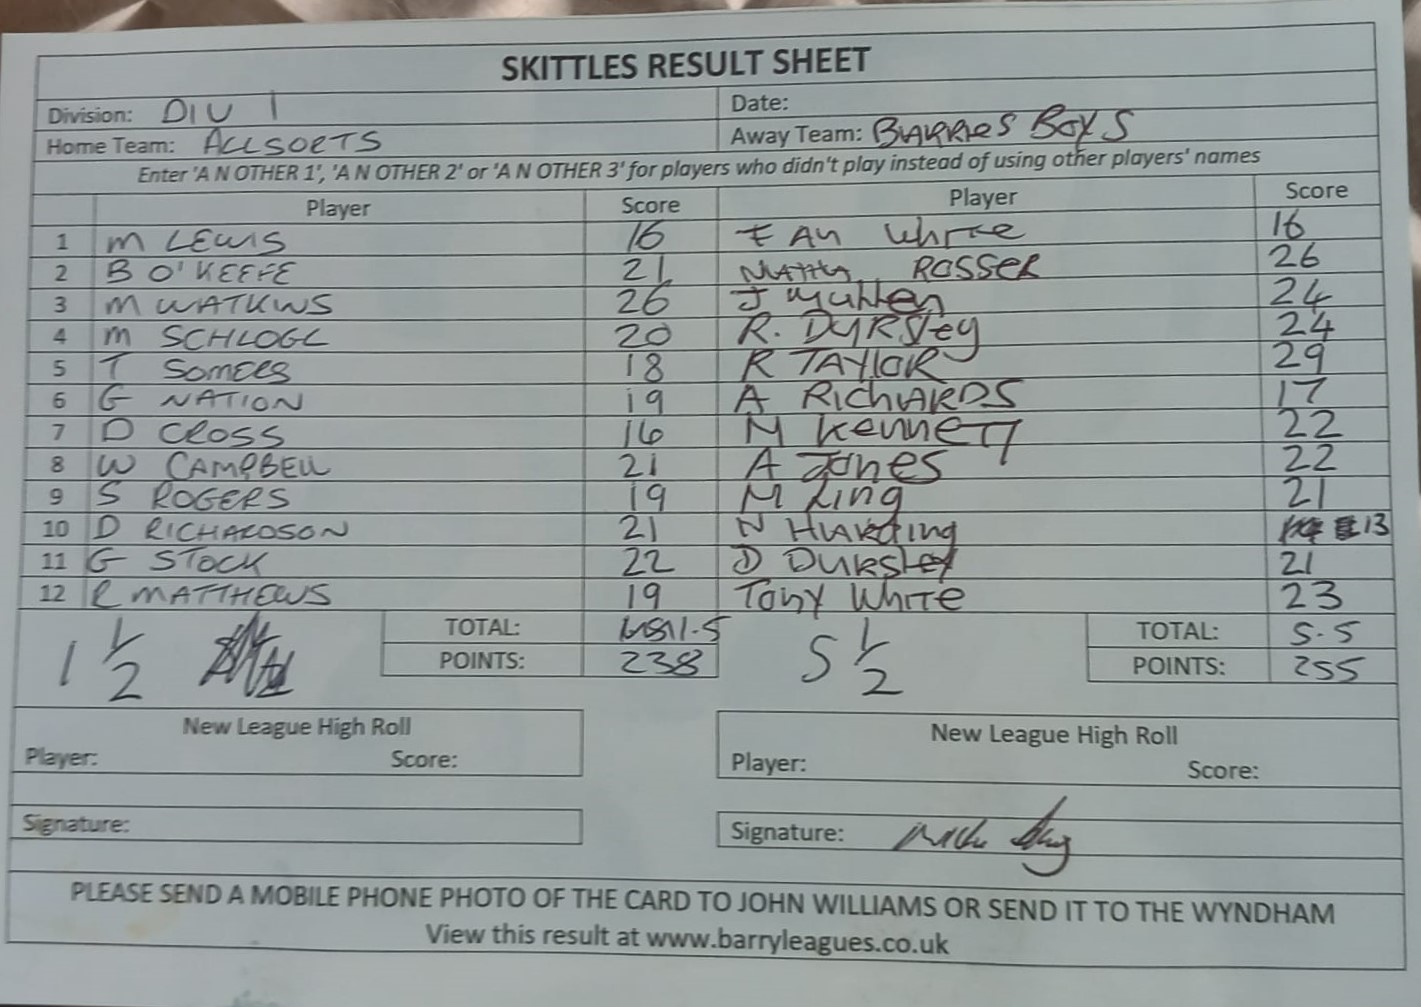 SKITTLES RESULT SHEET
Division: DIV 1 Date:
Home Team: ALLSORTS Away Team: BARRIES BOYS
Enter 'A N OTHER 1', 'A N OTHER 2' or 'A N OTHER 3' for players who didn't play instead of using other players' names
Player Score Player Score
1 M LEWIS 16 IAN White 16
2 B O'KEEFE 21 Matty ROSSER 26
3 M WATKINS 26 J 24
4 M SCHLOGL 20 R. DURSley 24
5 T SOMERS 18 R TAYLOR 29
6 G NATION 19 A RICHARDS 17
7 D CROSS 16 M KenneTT 22
8 W CAMPBELL 21 A Jones 22
9 S ROGERS 19 M King 21
10 D RICHARDSON 21 N HARding 13
11 G STOCK 22 D Dursley 21
12 R MATTHEWS 19 Tony White 23
1 1/2 TOTAL: 1.5 5 1/2 TOTAL: 5.5
POINTS: 238 POINTS: 255
New League High Roll New League High Roll
Player: Score: Player: Score:
Signature: Signature:
PLEASE SEND A MOBILE PHONE PHOTO OF THE CARD TO JOHN WILLIAMS OR SEND IT TO THE WYNDHAM
View this result at www.barryleagues.co.uk